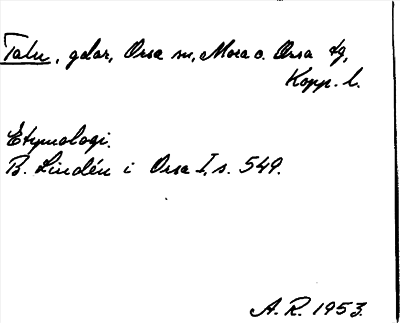 Talu, gdar, Orsa sn, Mora o. Orsa tg,
Kopp. l.
Etymologi.
B. Lindén i Orsa I, s. 549.
A. R. 1953.